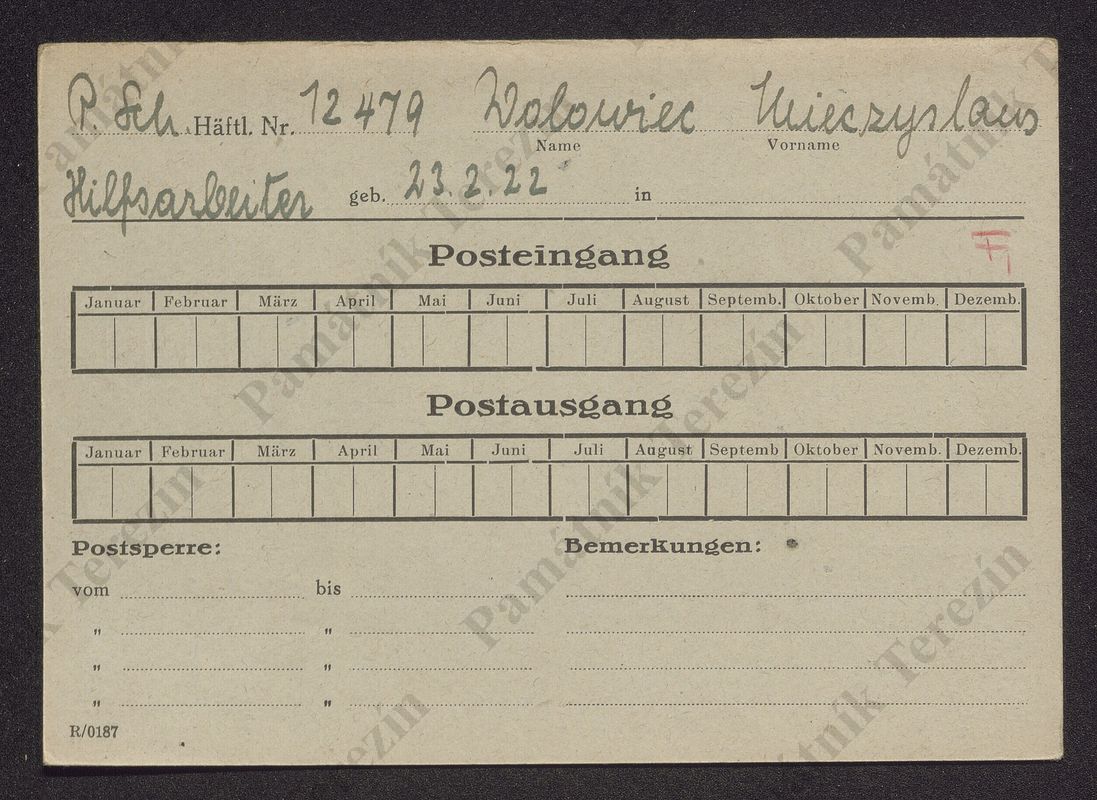 P. Sch. Häftl. Nr. 12479 Wolowiec Mieczyslaus
Name Vorname
Hilfsarbeiter geb. 23.2.22 in
Posteingang
Januar Februar März April Mai Juni Juli August Septemb. Oktober Novemb. Dezemb.
Postausgang
Januar Februar März April Mai Juni Juli August Septemb Oktober Novemb. Dezemb.
Postsperre: Bemerkungen:
vom bis
" "
" "
" "
R/0187
Památník Terezín